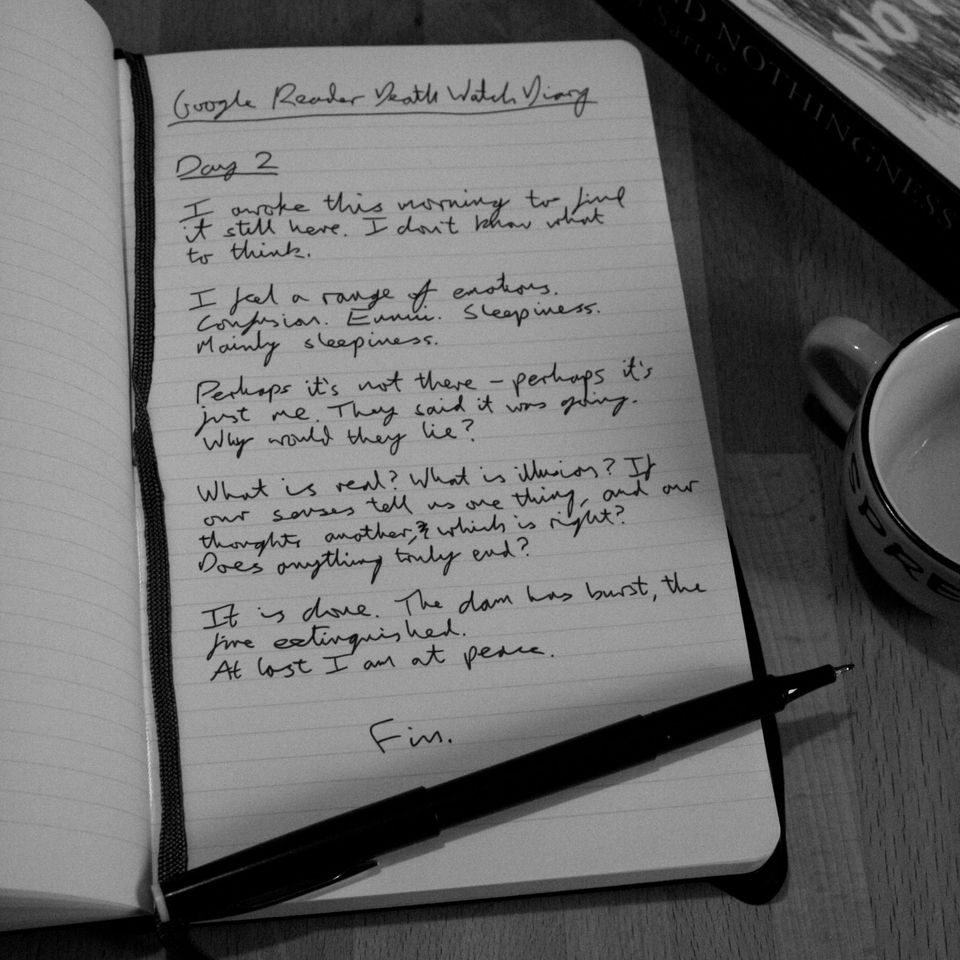 Google Reader Death Watch Diary
Day 2
I awoke this morning to find
it still here. I don't know what
to think.
I feel a range of emotions.
Confusion. Ennui. Sleepiness.
Mainly sleepiness.
Perhaps it's not there – perhaps it's
just me. They said it was going.
Why would they lie?
What is real? What is illusion? If
our senses tell us one thing, and our
thoughts another, & which is right?
Does anything truly end?
It is done. The dam has burst, the
fire extinguished.
At last I am at peace.
Fin.
ND NOTHINGNESS
Sartre
NO
ESPRE